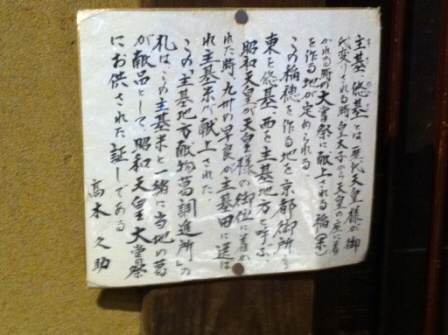 主基、悠基とは歴代天皇様が御
代変りされる時皇太子から天皇の座に着
かれる時の大嘗祭に献上される稲(米)
を作る地が定められる
この稲穂を作る地を京都御所より
東を悠基、西を主基地方と呼ぶ
昭和天皇が天皇様の御位に着か
れた時、九州の早良が主基田に選ば
れ主基米が献上された
この「主基地方献物葛調進所」の
札はこの主基米と一緒に当地の葛
が献品として、昭和天皇大嘗祭
にお供された証しである
高木久助